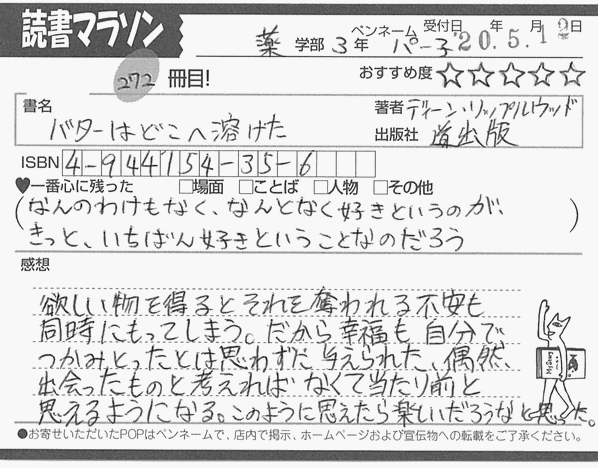 読書マラソン
薬 学部 3年 ペンネーム パー子 受付日 '20年 5月 1 日
272 冊目! おすすめ度 ☆☆☆☆☆
書名 著者 ディーン・リップルウッド
バターはどこへ溶けた 出版社 道出版
ISBN 4-944154-35-6
♥一番心に残った □場面 □ことば □人物 □その他
(なんのわけもなく、なんとなく好きというのが、
きっと、いちばん好きということなのだろう)
感想
欲しい物を得るとそれを奪われる不安も
同時にもってしまう。だから幸福も自分で
つかみとったとは思わずに与えられた、偶然、
出会ったものと考えれば なくて当たり前と
思えるようになる。このように思えたら楽しいだろうなと思った。
●お寄せいただいたPOPはペンネームで、店内で掲示、ホームページおよび宣伝物への転載をご了承ください。